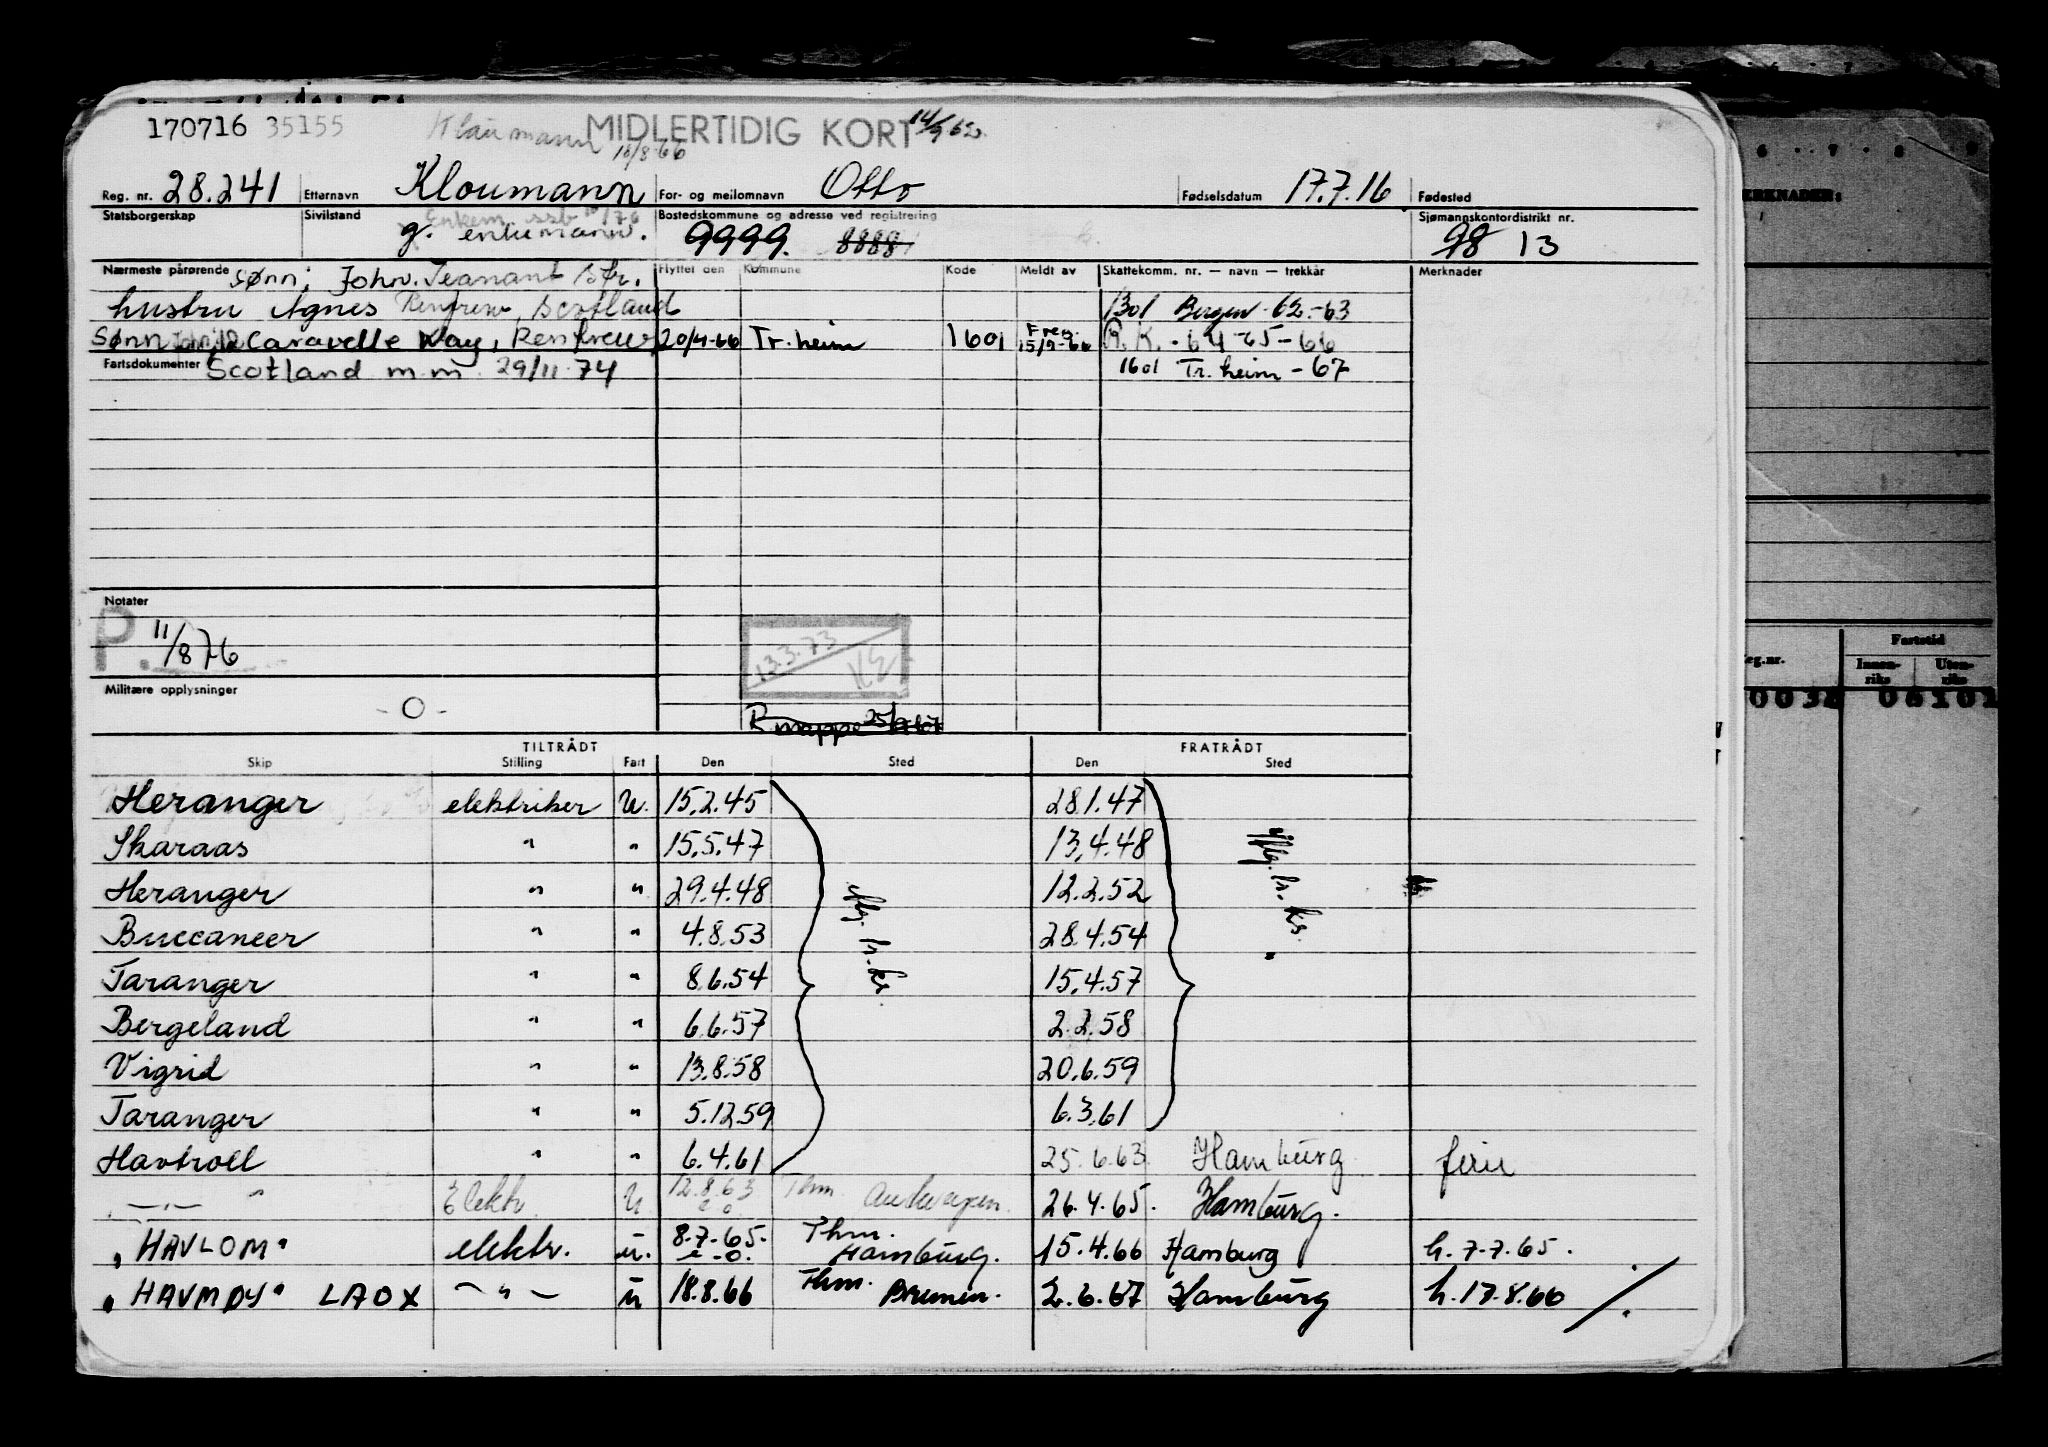 170716 35155 Klaumann MIDLERTIDIG KORT 14/9 62.
18/8-66
Reg. nr. 28.241 Etternavn Kloumann For- og mellomnavn Otto Fødselsdatum 17.7.16 Fødested
Statsborgerskap Sivilstand g. enkemann. Bostedskommune og adresse ved registrering 9999. 8888 Sjømannskontordistrikt nr. 98 13
Nærmeste pårørende Sønn: John. Teanant Str. Flyttet den Kommune Kode Meldt av Skattekomm. nr. — navn — trekkår Merknader
hustru Agnes Renfrew, Scotland 1301 Bergen -62-63
Sønn John, 12 Caravelle Way, Renfrew 20/4-66 Tr.heim 1601 Freg. 15/9-66 R.K. -64-65-66
Fartsdokumenter Scotland m.m 29/11-74 1601 Tr.heim -67
Notater
P. 11/8 76
13.3.73 KE
Militære opplysninger -O-
R.mappe
TILTRÅDT FRATRÅDT
Skip Stilling Fart Den Sted Den Sted
Heranger elektriker U. 15.2.45 28.1.47
Skaraas " " 15.5.47 13.4.48
Heranger " " 29.4.48 12.2.52
Buccaneer " " 4.8.53 28.4.54
Taranger " " 8.6.54 15.4.57
Bergeland " " 6.6.57 2.2.58
Vigrid " " 13.8.58 20.6.59
Taranger " " 5.12.59 6.3.61
Havtroll " " 6.4.61 25.6.63 Hamburg ferie
iflg. hr. ks. iflg. hr. ks.
—"— " Elektr. U. 12.8.63 Thm. Antwerpen. 26.4.65. Hamburg.
"HAVLOM" elektr. u. 8.7-65. Thm. Hamburg. 15.4.66 Hamburg h. 7-7.65.
"HAVMØY" LAOX —"— u 18.8.66 Thm. Bremen. 2.6.67 Hamburg h. 17.8.66
MERKNADER:
Reg.nr. Fartstid
Innenriks Utenriks